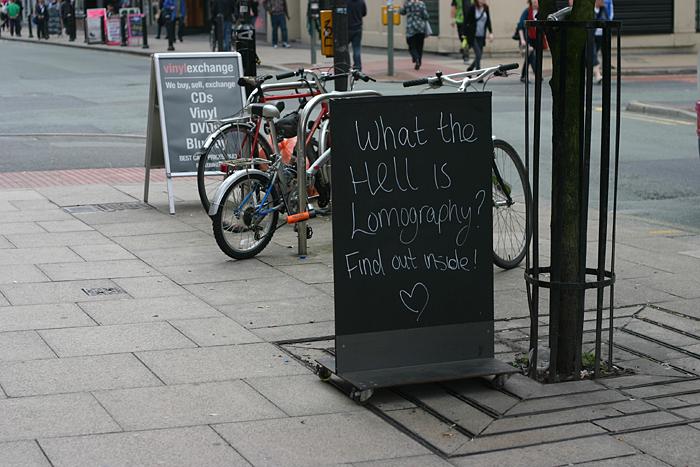 vinylexchange
We buy, sell, exchange
CDs
Vinyl
What the
Hell is
Lomography?
Find out inside!